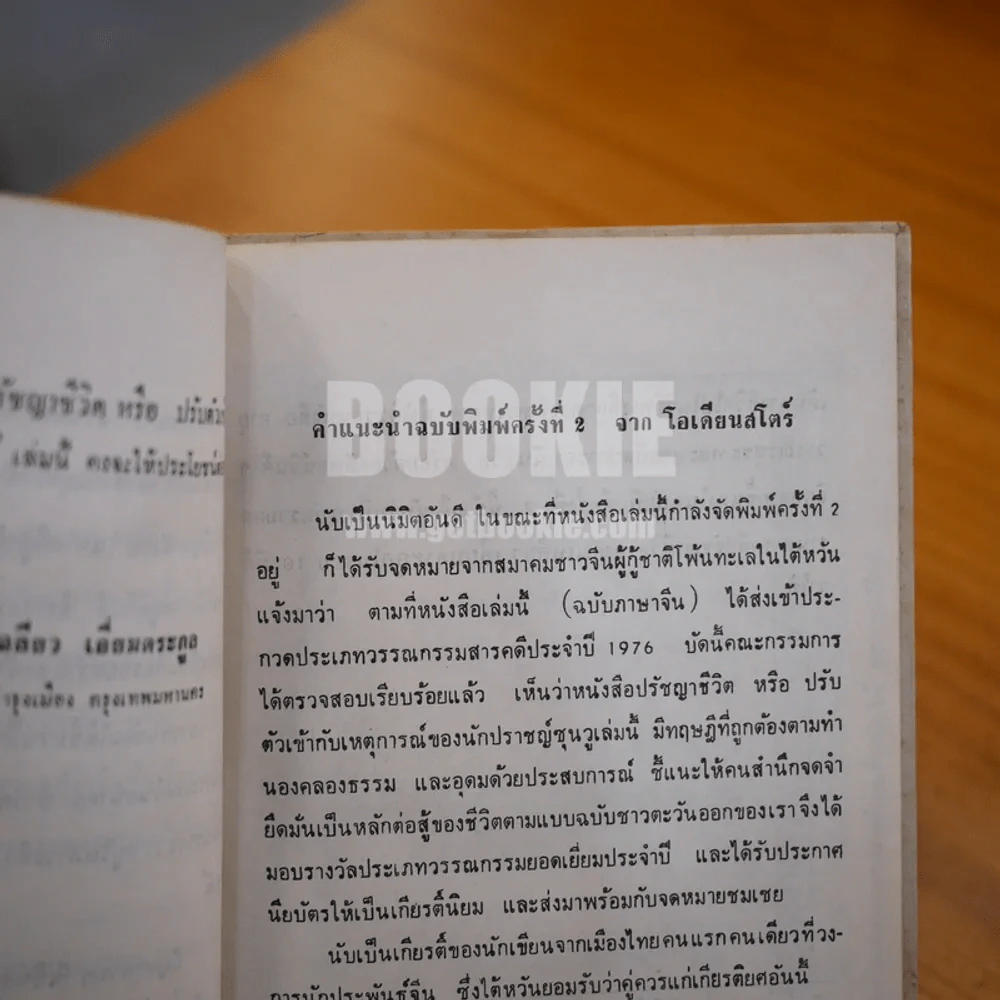 ชีวิต หรือ
เล่มนี้ คงจะให้ประโยชน์
เอี่ยมตระกูล
กรุงเทพมหานคร
BOOKIE
www.getbookie.com
คำแนะนำฉบับพิมพ์ครั้งที่ 2 จาก โอเดียนสโตร์
นับเป็นนิมิตอันดี ในขณะที่หนังสือเล่มนี้กำลังจัดพิมพ์ครั้งที่ 2
อยู่ ก็ได้รับจดหมายจากสมาคมชาวจีนผู้กู้ชาติโพ้นทะเลในไต้หวัน
แจ้งมาว่า ตามที่หนังสือเล่มนี้ (ฉบับภาษาจีน) ได้ส่งเข้าประ-
กวดประเภทวรรณกรรมสารคดีประจำปี 1976 บัดนี้คณะกรรมการ
ได้ตรวจสอบเรียบร้อยแล้ว เห็นว่าหนังสือปรัชญาชีวิต หรือ ปรับ
ตัวเข้ากับเหตุการณ์ของนักปราชญ์ซุนวูเล่มนี้ มีทฤษฎีที่ถูกต้องตามทำ
นองคลองธรรม และอุดมด้วยประสบการณ์ ชี้แนะให้คนสำนึกจดจำ
ยึดมั่นเป็นหลักต่อสู้ของชีวิตตามแบบฉบับชาวตะวันออกของเราจึงได้
มอบรางวัลประเภทวรรณกรรมยอดเยี่ยมประจำปี และได้รับประกาศ
นียบัตรให้เป็นเกียรตินิยม และส่งมาพร้อมกับจดหมายชมเชย
นับเป็นเกียรติ์ของนักเขียนจากเมืองไทยคนแรกคนเดียวที่วง-
การนักประพันธ์จีน ซึ่งไต้หวันยอมรับว่าคู่ควรแก่เกียรติยศอันนี้